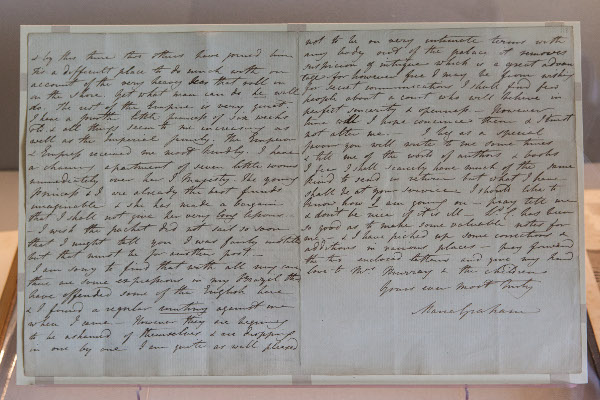 & by this time two others have joined him
Tis a difficult place to do much with on
account of the very heavy seas that roll on
on the shore. Yet what man can do he will
do. The rest of the Empire is very quiet.
I have a fourth little princess of six weeks
old & all things seem to be increasing as
well as the Imperial family. The Emperor
& Empress received me most kindly. I have
a charming apartment of seven little rooms
immediately over her I. Majesty. The young
Princess & I are already the best friends
imaginable & she has made a bargain
that I shall not give her very long lessons
I wish the packet did not sail so soon
that I might tell you I was fairly installed
but that must be for another post —
I am sorry to find that with all my care
there are some expressions in my Brazil that
have offended some of the English here
& I found a regular meeting against me
when I came — However they are beginning
to be ashamed of themselves & are dropping
in one by one I am quite as well pleased
not to be on very intimate terms with
any body out of the palace it removes
suspicion of intrigue which is a great advan
tage for however free I may be from wishing
for secret communications I shall find few
people about a court who will believe in
perfect sincerity & openness — However
time will I hope convince them & I trust
not alter me — I beg as a special
favour you will write to me some times
& tell me of the world of authors & books
I fear I shall scarcely have much of the same
kind to send in return but what I have
shall be at your service — I should like to
know how I am going on — pray tell me
& don't be nice if it is ill — has been
so good as to make some valuable notes for
me — & I have picked up some corrections &
additions in various places — pray forward
the two enclosed letters and give my kind
love to Mrs Murray & the children
Yours ever most truly
Maria Graham